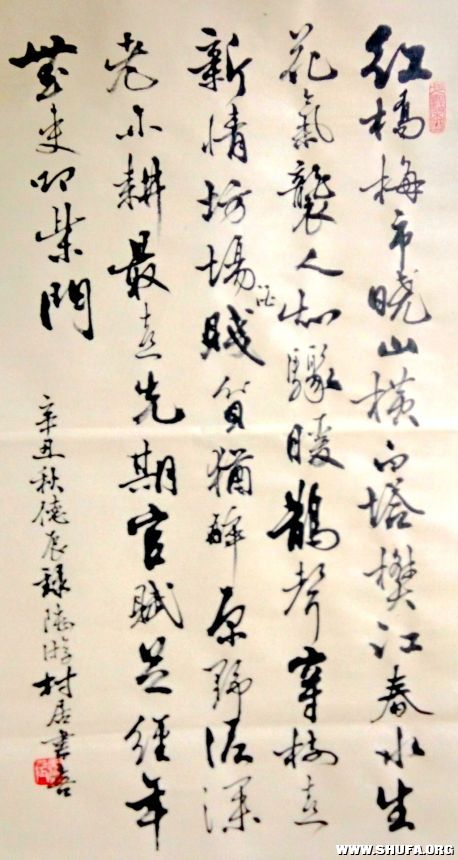 红橋梅市晓山横白塔樊江春水生
花氣襲人知驟暖鵲聲穿樹喜
新情坊場酒賤貧猶醉原野泥深
老亦耕最喜先期官賦足經年
無吏叩柴門
辛丑秋德辰録陸游村居書喜
WWW.SHUFA.ORG